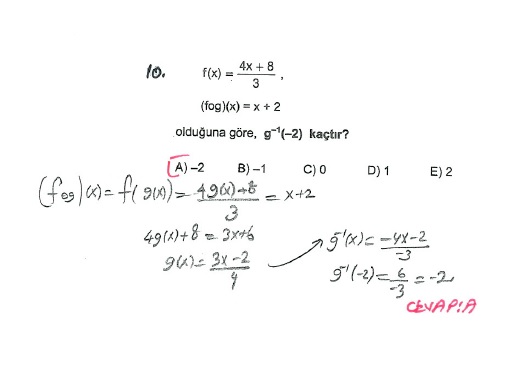 10. f(x) = 4x + 8 / 3 ,
(fog)(x) = x + 2
olduğuna göre, g⁻¹(–2) kaçtır?
A) –2 B) –1 C) 0 D) 1 E) 2
(fog)(x) = f(g(x)) = 4g(x)+8 / 3 = x+2
4g(x)+8 = 3x+6
g(x) = 3x-2 / 4
g⁻¹(x) = -4x-2 / -3
g⁻¹(-2) = 6 / -3 = -2
CEVAP:A